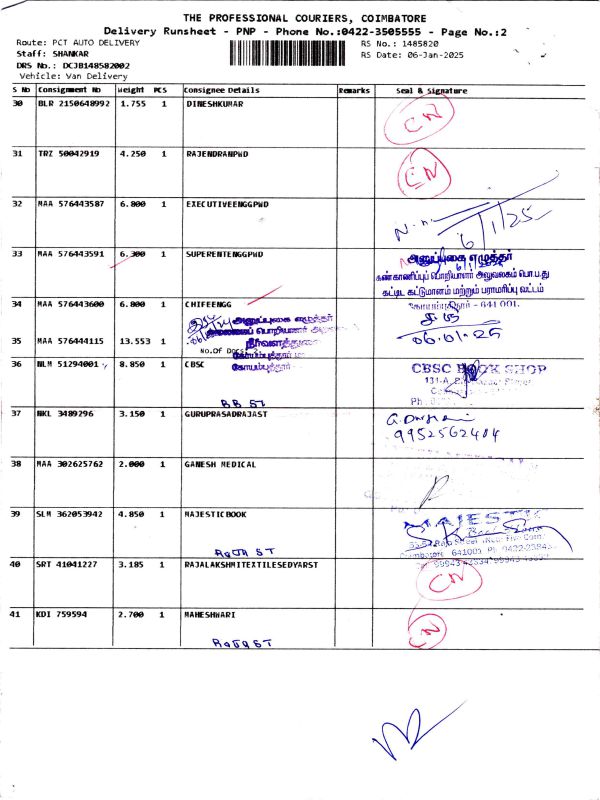 THE PROFESSIONAL COURIERS, COIMBATORE
Delivery Runsheet - PNP - Phone No.:0422-3505555 - Page No.:2
Route: PCT AUTO DELIVERY
RS No.: 1485820
Staff: SHANKAR
RS Date: 06-Jan-2025
DRS No.: DCJB148582002
Vehicle: Van Delivery
S No Consignment No Weight PCS Consignee Details Remarks Seal & Signature
30 BLR 2150648992 1.755 1 DINESHKUMAR CN
31 TRZ 50042919 4.250 1 RAJENDRANPWD CN
32 MAA 576443587 6.800 1 EXECUTIVEENGGPWD
6/1/25
33 MAA 576443591 6.300 1 SUPERENTENGGPWD அனுப்புகை எழுத்தர்
கண்காணிப்புப் பொறியாளர் அலுவலகம் பொ.ப.து
கட்டிட கட்டுமானம் மற்றும் பராமரிப்பு வட்டம்
கோயம்புத்தூர் - 641 001.
34 MAA 576443600 6.800 1 CHIFEENGG
அனுப்புகை எழுத்தர்
35 MAA 576444115 13.553 1
06-01-25
No.Of Docs:
கோயம்புத்தூர்
36 NLM 51294001 8.850 1 CBSC CBSC BOOK SHOP
131-A,
Ph.
BB ST
37 NKL 3489296 3.150 1 GURUPRASADRAJAST
9952562404
38 MAA 302625762 2.000 1 GANESH MEDICAL
39 SLM 362053942 4.850 1 MAJESTICBOOK MAJESTIC
Coimbatore 641001. Ph: 0422-
Raja ST
40 SRT 41041227 3.185 1 RAJALAKSHMITEXTILESEDYARST CN
41 KDI 759594 2.700 1 MAHESHWARI CN
Raja ST